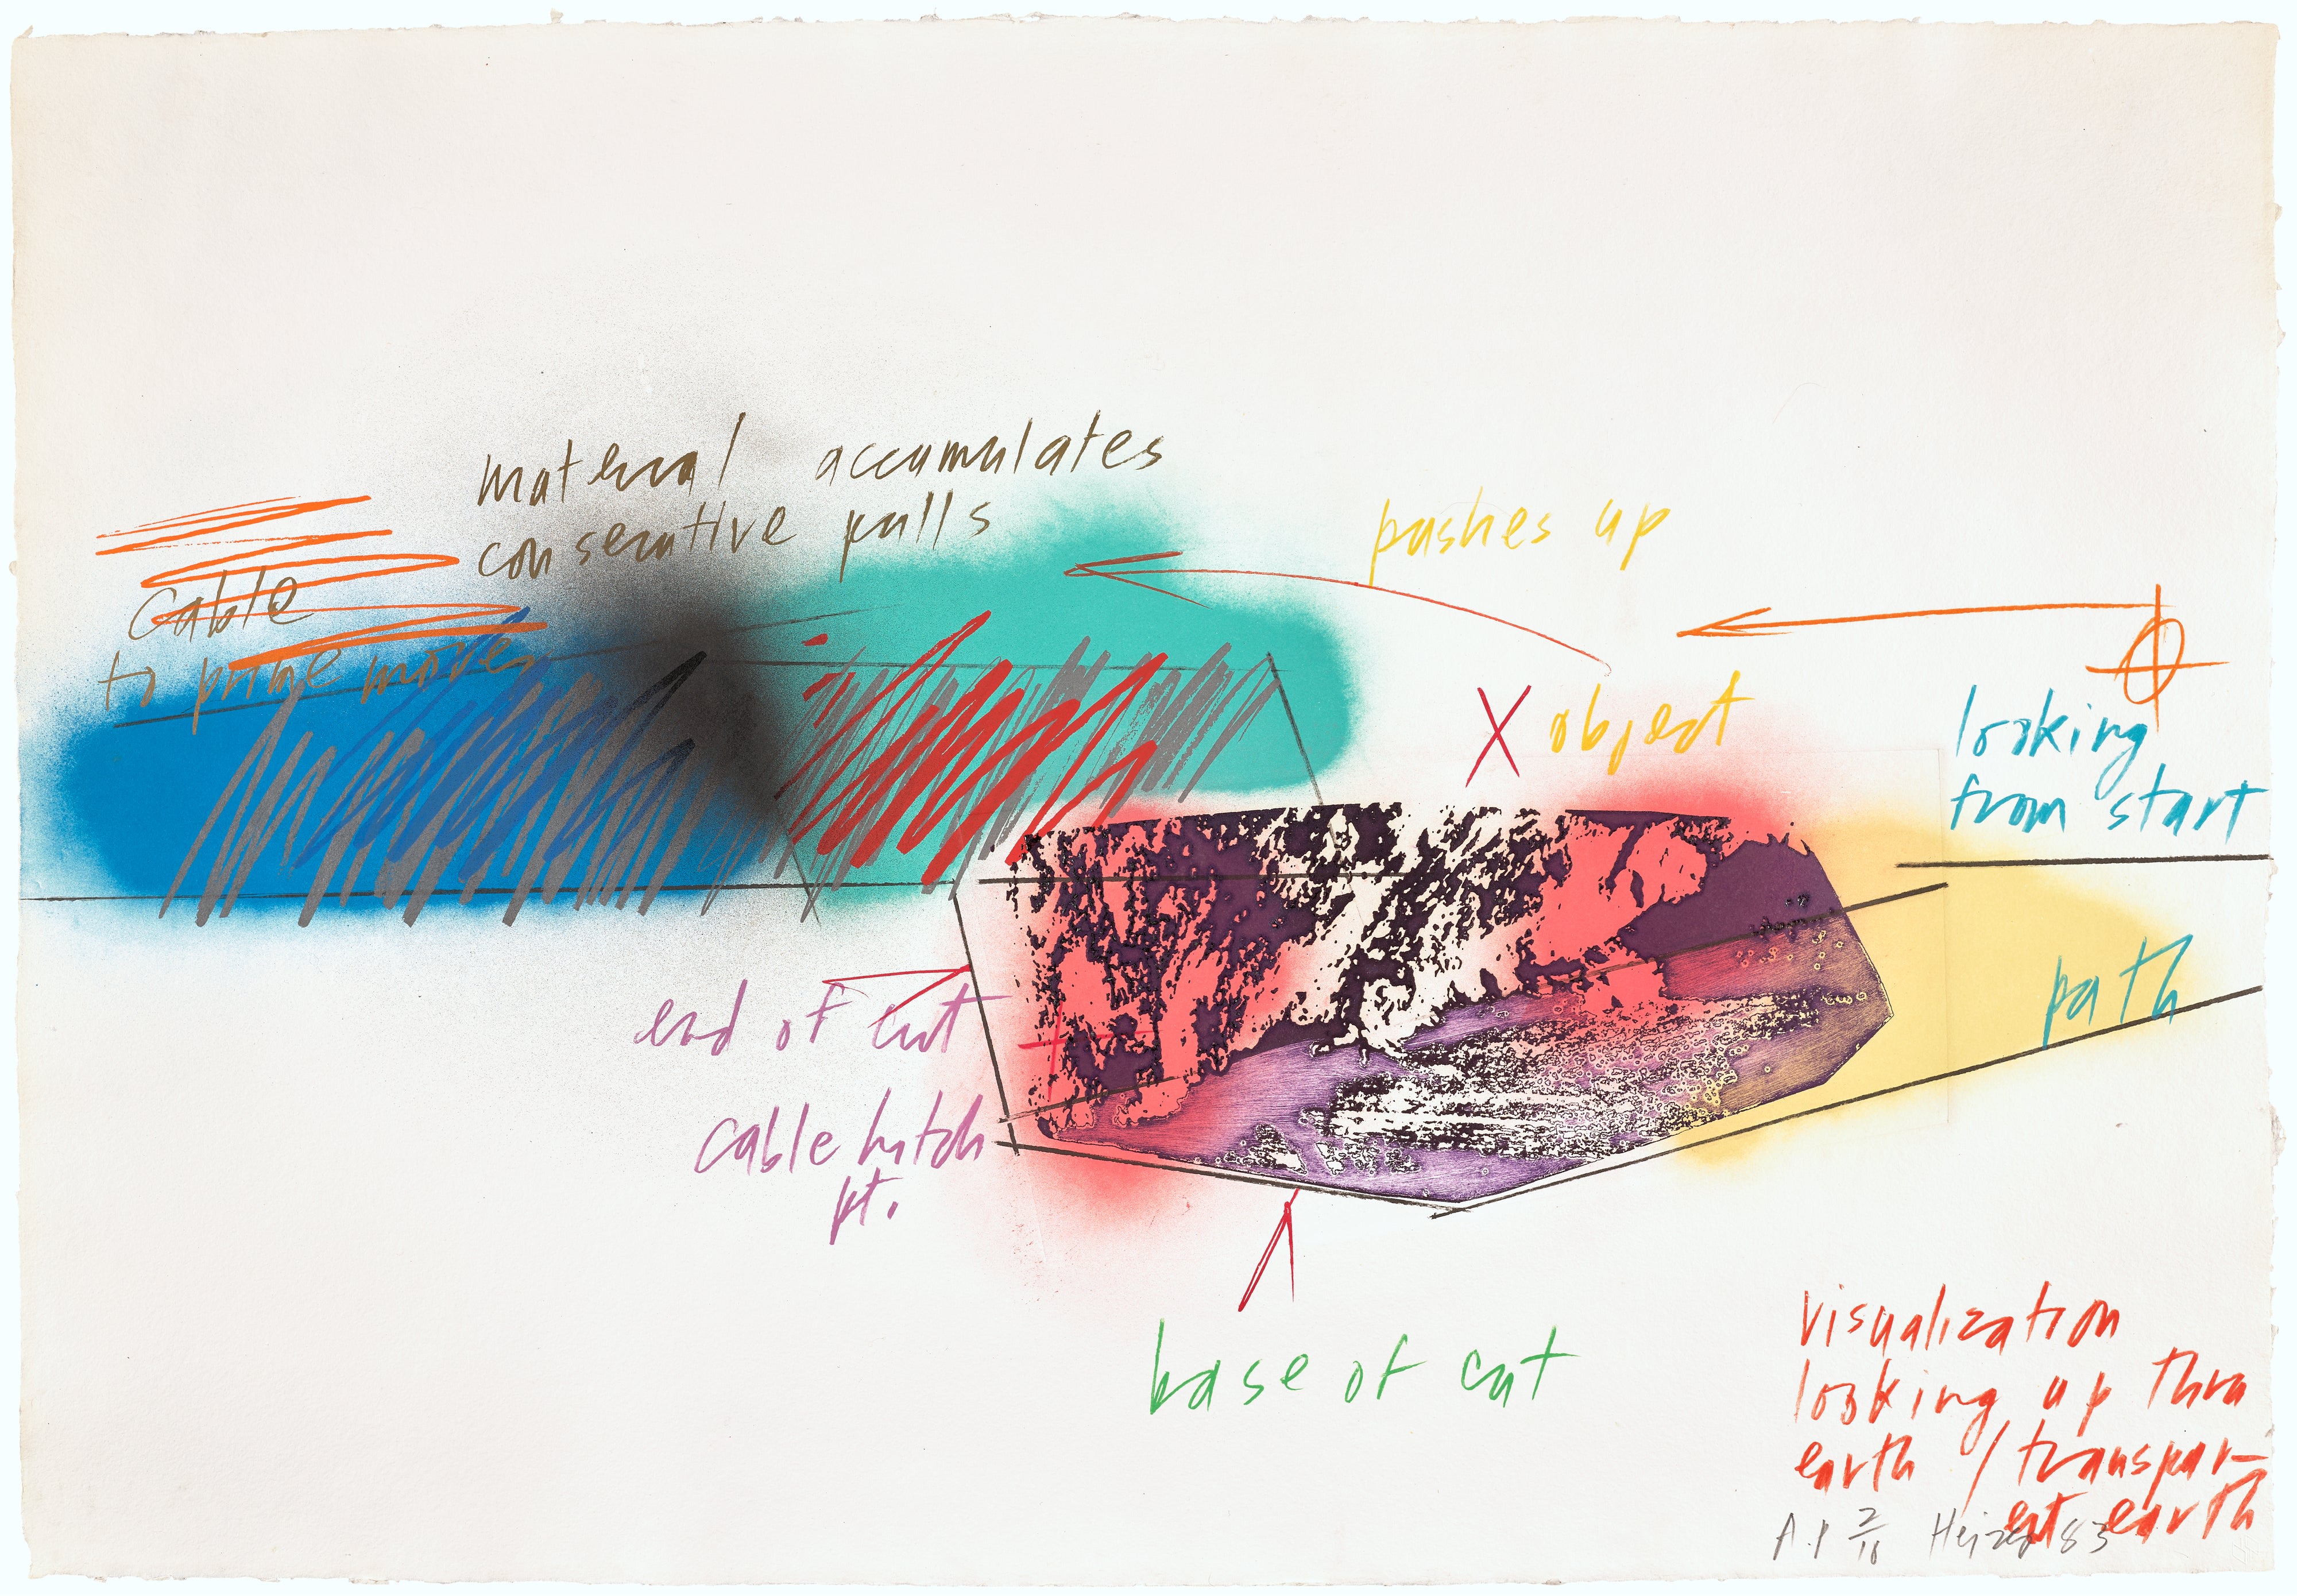 material accumulates
consecutive pulls
cable
to prime mover
pushes up
X object
looking
from start
path
end of cut
cable hitch
pt.
base of cut
visualization
looking up thru
earth / transpar-
ent earth
A.P 2/10 Heizer 83